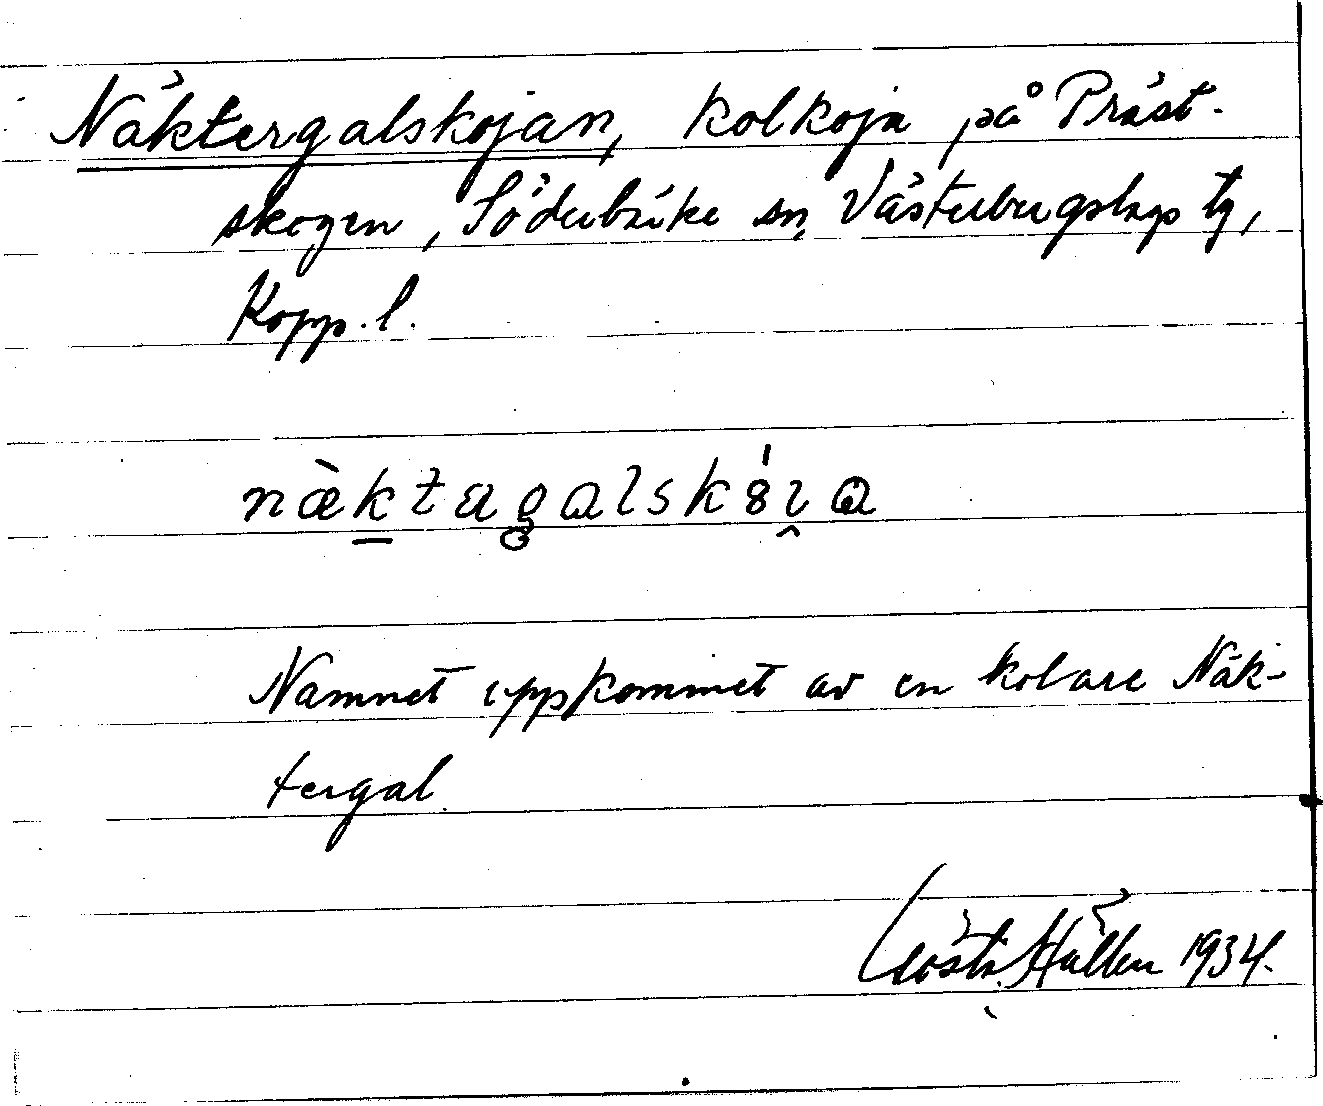 Näktergalskojan, kolkoja på Präst-
skogen, Söderbärke sn, Västerbergslags tg,
Kopp. l.
nàktagalskóia
Namnet uppkommet av en kolare Näk-
tergal.
Gösta Hallén 1934.